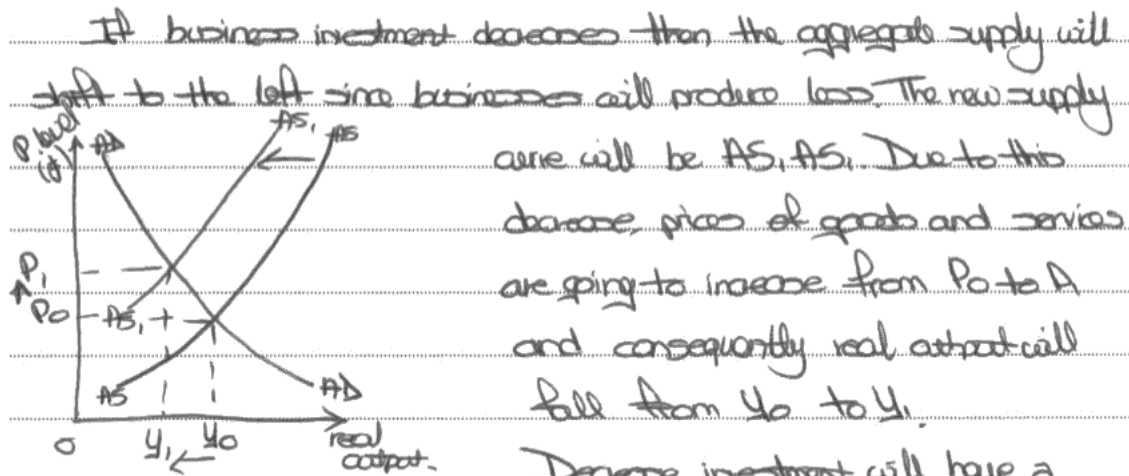 If business investment decreases then the aggregate supply will
shift to the left since businesses will produce less. The new supply
curve will be AS₁ AS₁. Due to this
decrease, prices of goods and services
are going to increase from P0 to P₁
and consequently real output will
fall from Y0 to Y₁.
Decrease investment will have a
P. level
(£)
AD
AS₁
AS
P₁
P0
AS₁
AS
AD
0
Y₁
Y0
real
output.